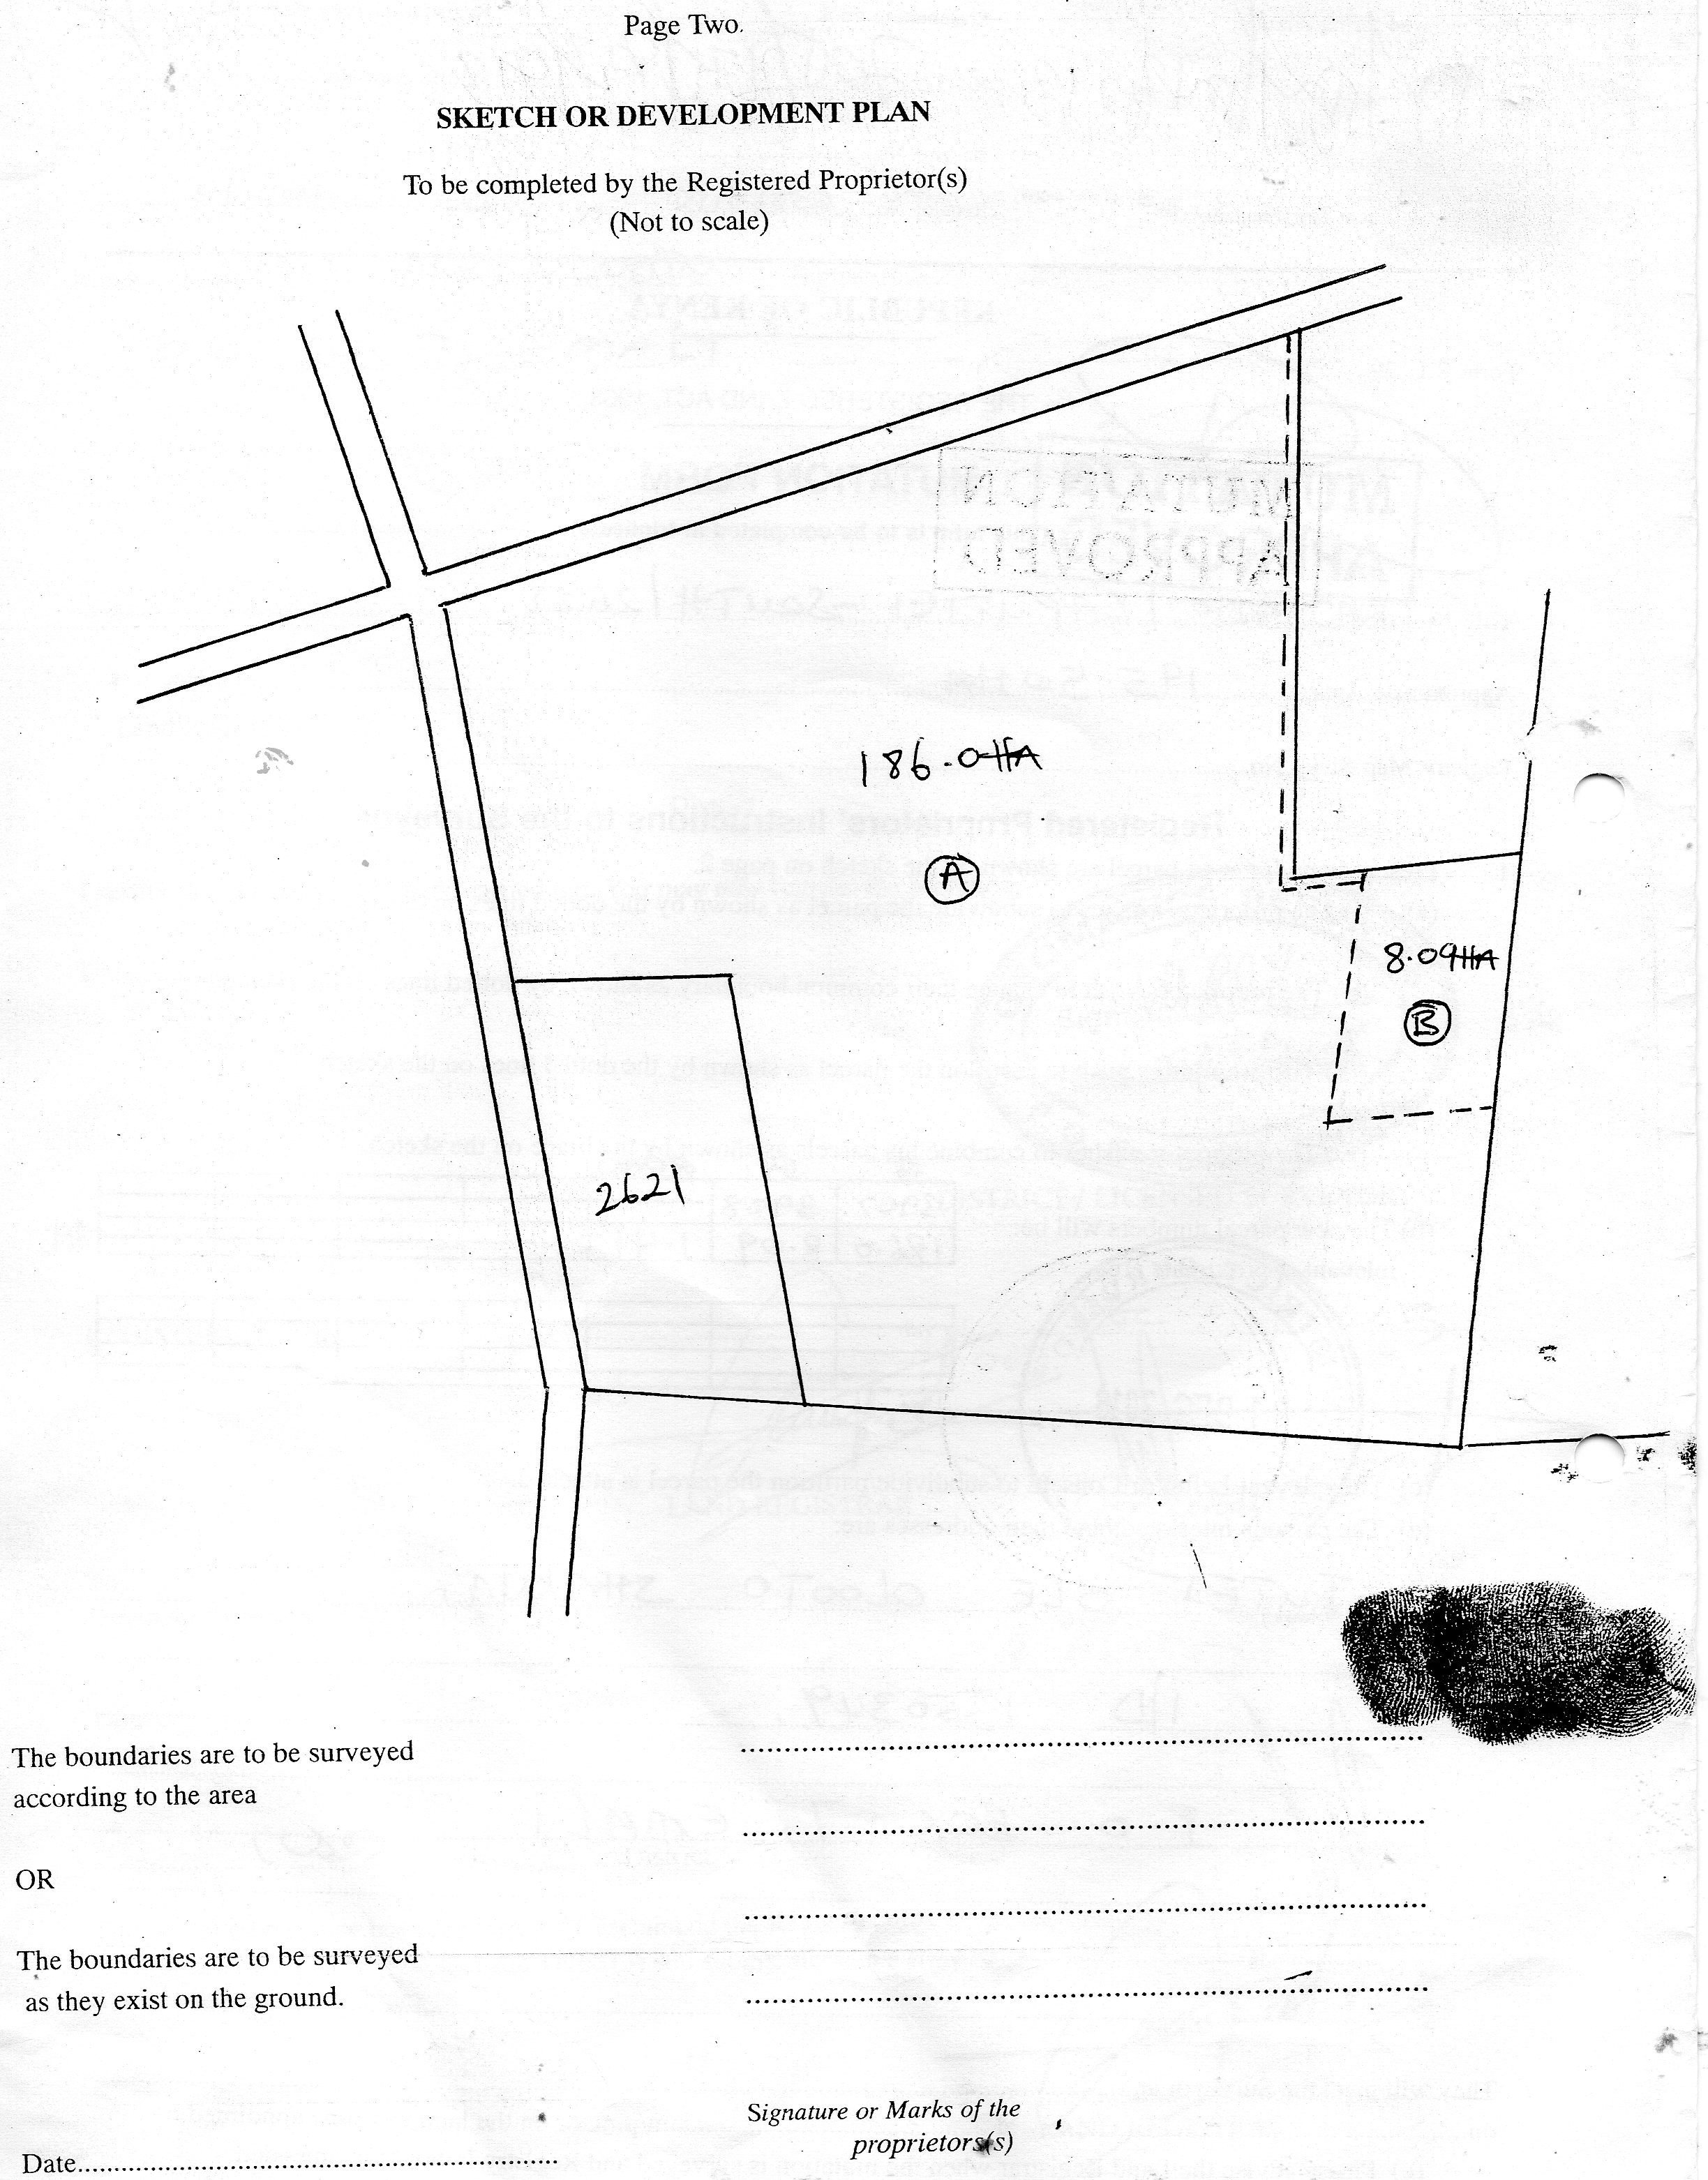 Page Two.
SKETCH OR DEVELOPMENT PLAN
To be completed by the Registered Proprietor(s)
(Not to scale)
186.0HA
A
8.09HA
B
2621
The boundaries are to be surveyed
according to the area
OR
The boundaries are to be surveyed
as they exist on the ground.
Signature or Marks of the
proprietors(s)
Date